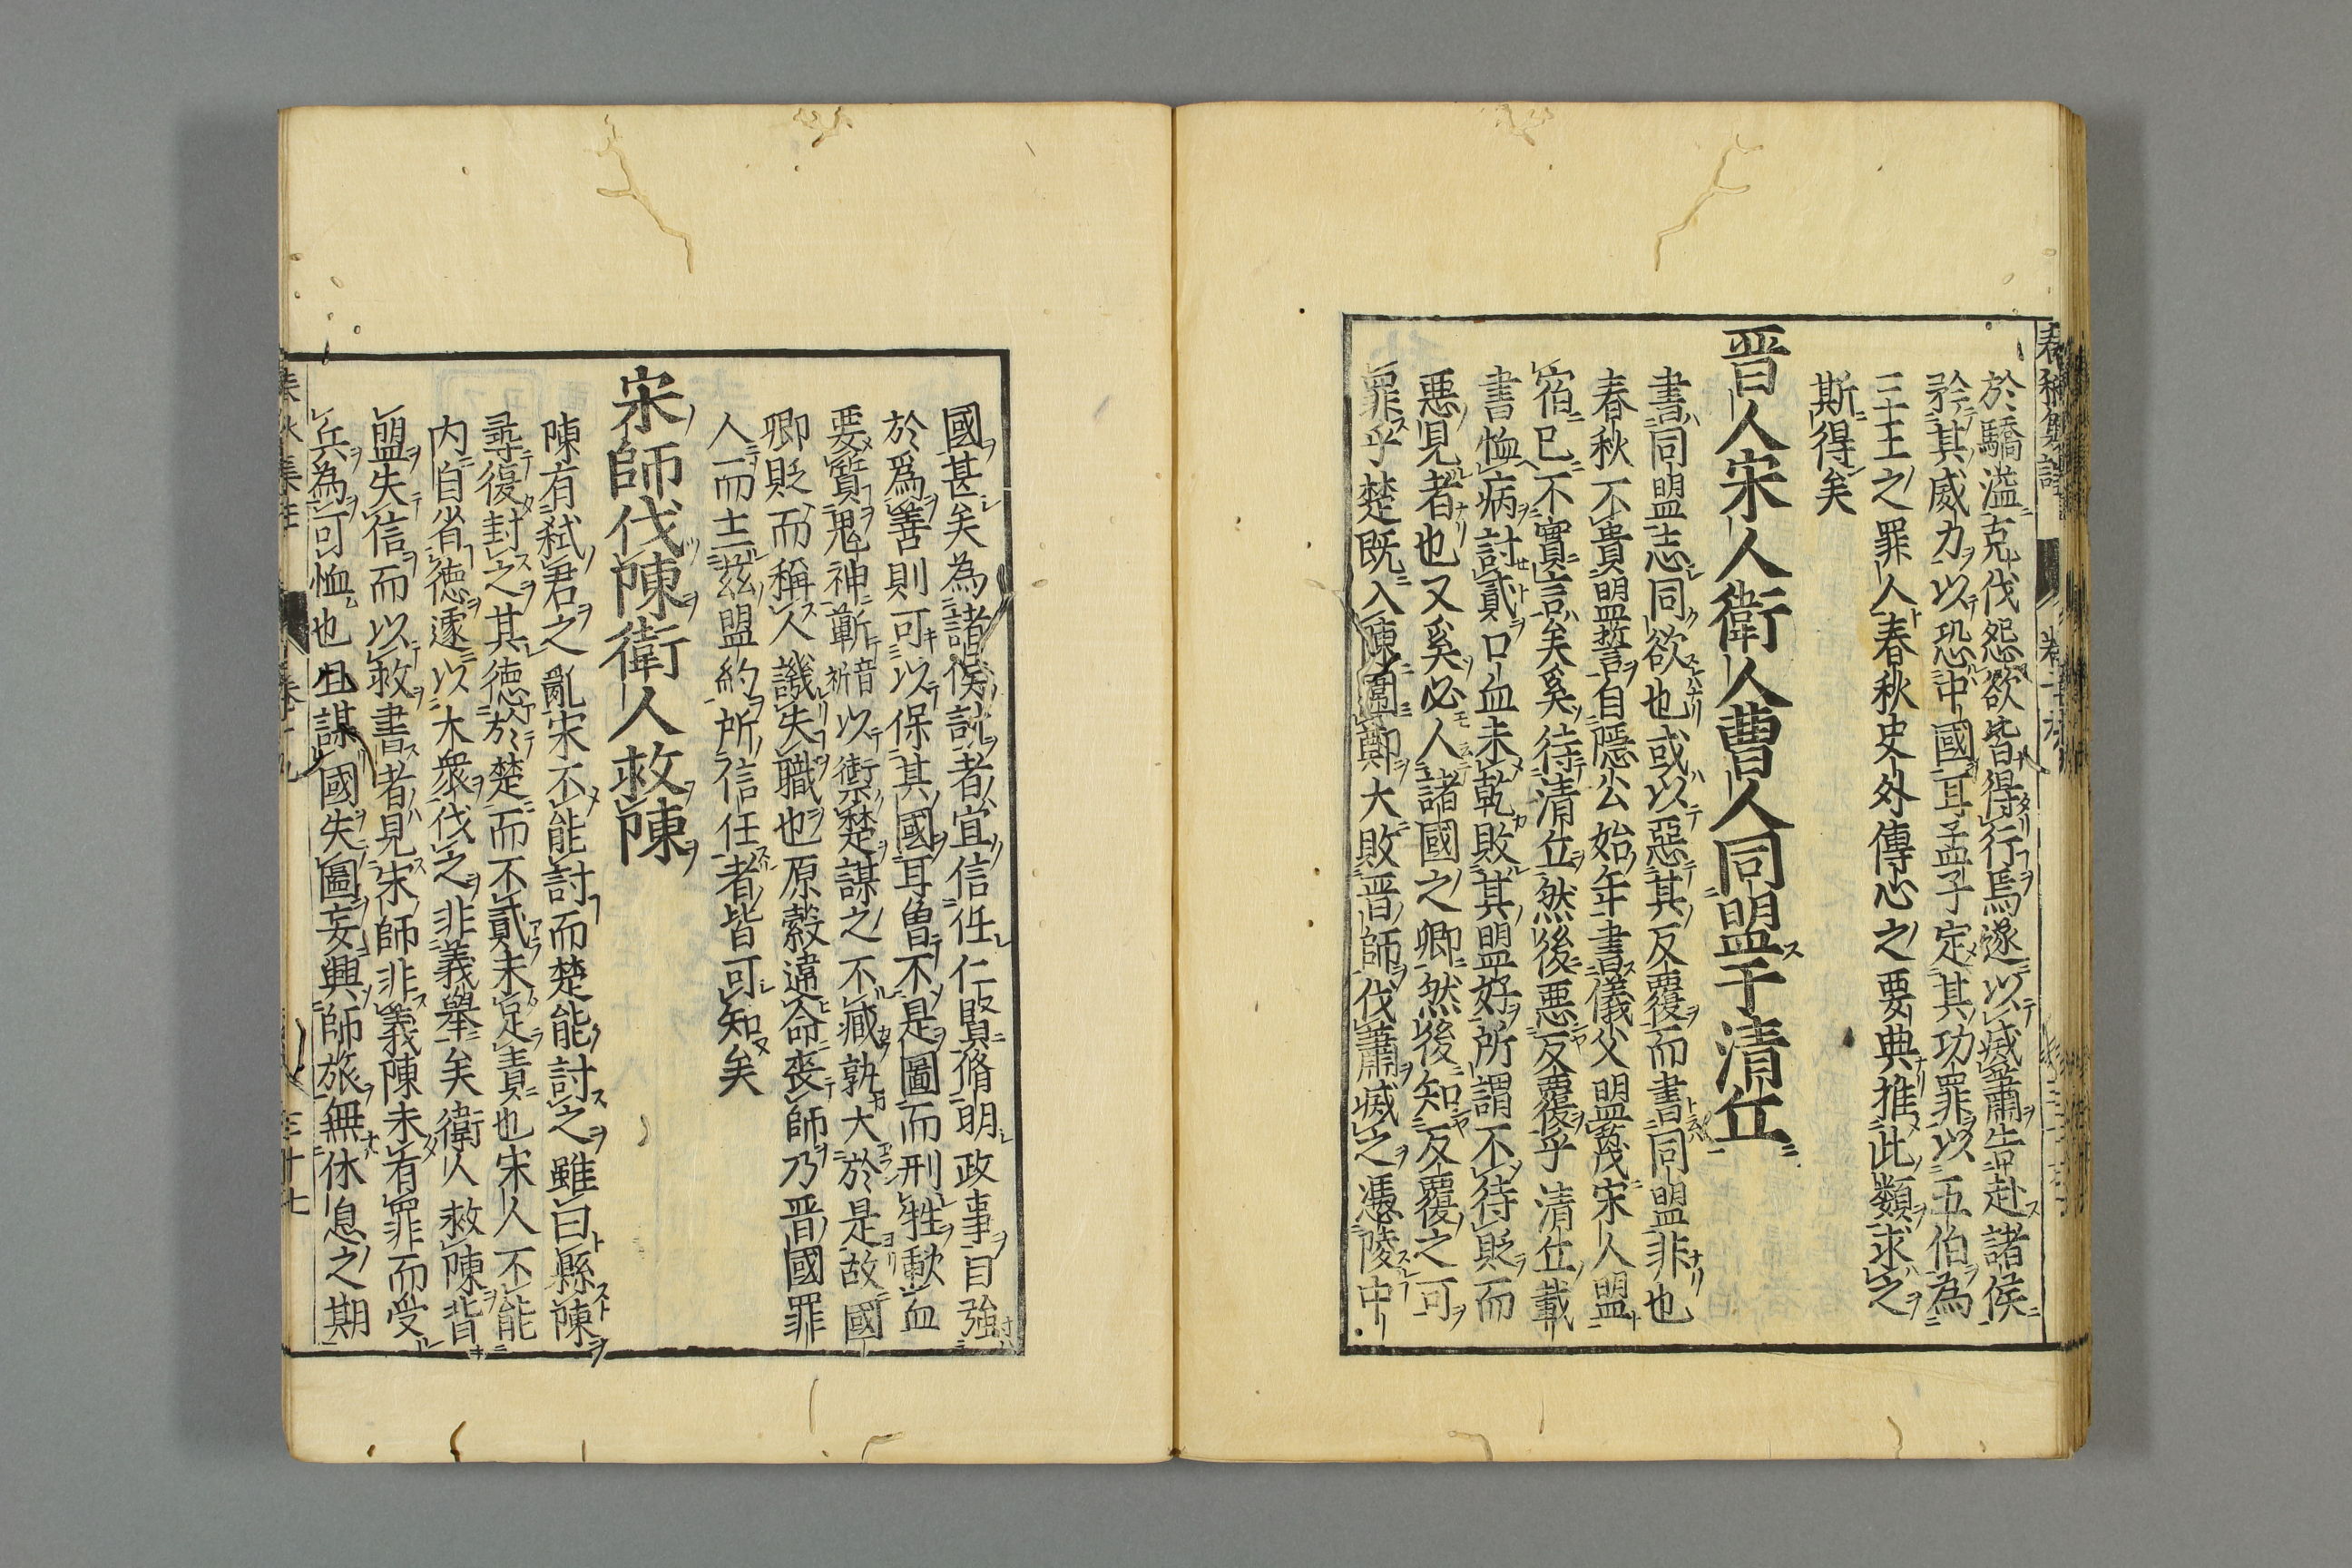 於驕溢克伐怨欲皆得行焉遂以滅蕭告赴諸侯
矜其威力以恐中國耳孟子定其功罪以五伯為
三王之罪人春秋史外傳心之要典推此類求之
斯得矣
晋人宋人衛人曹人同盟于清丘
書同盟志同欲也或以惡其反覆而書同盟非也
春秋不貴盟誓自隱公始年書儀父盟蔑宋人盟
宿已不實言矣奚待清丘然後惡反覆乎清丘載
書恤病討貳口血未乾敗其盟好所謂不待貶而
惡見者也又奚必人諸國之卿然後知反覆之可
罪乎楚既入陳圍鄭大敗晋師伐蕭滅之憑陵中
國甚矣為諸侯計者宜信任仁賢脩明政事自強
於爲善則可以保其國耳曽不是圖而刑牲歃血
要質鬼神蘄以禦楚謀之不臧孰大於是故國
卿貶而稱人譏失職也原縠違命喪師乃晋國罪
人而主兹盟約所信任者皆可知矣
宋師伐陳衛人救陳
陳有弑君之亂宋不能討而楚能討之雖曰縣陳
尋復封之其徳於楚而不貳未足責也宋人不能
内自省徳遽以大衆伐之非義舉矣衛人救陳背
盟失信而以救書者見宋師非義陳未有罪而受
兵為可恤也且謀國失圖妄興師旅無休息之期
春秋集註 卷十九 三十七